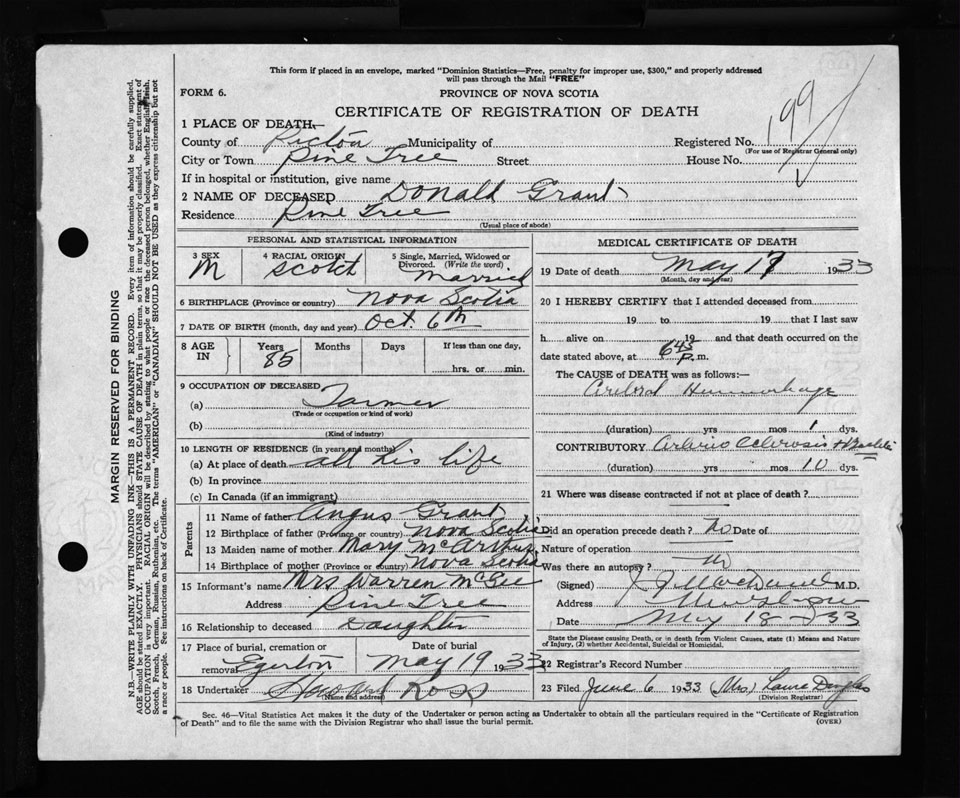 This form if placed in an envelope, marked "Dominion Statistics—Free, penalty for improper use, $300," and properly addressed
will pass through the Mail "FREE"
FORM 6.
PROVINCE OF NOVA SCOTIA
CERTIFICATE OF REGISTRATION OF DEATH
199
1 PLACE OF DEATH—
County of Pictou Municipality of Registered No.
(For use of Registrar General only)
City or Town Pine Tree Street House No.
If in hospital or institution, give name
2 NAME OF DECEASED Donald Grant
Residence Pine Tree
(Usual place of abode)
PERSONAL AND STATISTICAL INFORMATION
3 SEX M
4 RACIAL ORIGIN Scotch
5 Single, Married, Widowed or Divorced. (Write the word) Married
6 BIRTHPLACE (Province or country) Nova Scotia
7 DATE OF BIRTH (month, day and year) Oct. 6th
8 AGE IN Years 85 Months Days If less than one day, hrs. or min.
9 OCCUPATION OF DECEASED
(a) Farmer
(Trade or occupation or kind of work)
(b)
(Kind of industry)
10 LENGTH OF RESIDENCE (in years and months)
(a) At place of death all his life
(b) In province
(c) In Canada (if an immigrant)
Parents
11 Name of father Angus Grant
12 Birthplace of father (Province or country) Nova Scotia
13 Maiden name of mother Mary McArthur
14 Birthplace of mother (Province or country) Nova Scotia
15 Informant's name Mrs Warren McGee
Address Pine Tree
16 Relationship to deceased Daughter
17 Place of burial, cremation or removal Egerton
Date of burial May 19 1933
18 Undertaker Howard Ross
(Name and address)
MEDICAL CERTIFICATE OF DEATH
19 Date of death May 17 1933
(Month, day and year)
20 I HEREBY CERTIFY that I attended deceased from
19 to 19 that I last saw
h alive on 19 and that death occurred on the
date stated above, at 6 45 p.m.
The CAUSE of DEATH was as follows:—
Cerebral Hemorrhage
(duration) yrs mos 1 dys.
CONTRIBUTORY Arterio Sclerosis
(duration) yrs mos 10 dys.
21 Where was disease contracted if not at place of death?
Did an operation precede death? No Date of
Nature of operation
Was there an autopsy? No
(Signed) M.D.
Address
Date May 18 - 33
State the Disease causing Death, or in death from Violent Causes, state (1) Means and Nature
of Injury, (2) whether Accidental, Suicidal or Homicidal.
22 Registrar's Record Number
23 Filed June 6 1933 (Mrs) Laura Douglas
(Division Registrar)
Sec. 46—Vital Statistics Act makes it the duty of the Undertaker or person acting as Undertaker to obtain all the particulars required in the "Certificate of Registration
of Death" and to file the same with the Division Registrar who shall issue the burial permit.
(OVER)
MARGIN RESERVED FOR BINDING
N.B.—WRITE PLAINLY WITH UNFADING INK—THIS IS A PERMANENT RECORD. Every item of information should be carefully supplied.
AGE should be stated EXACTLY. PHYSICIANS should STATE CAUSE OF DEATH in plain terms, so that it may be properly classified. Exact statement of
OCCUPATION is very important. RACIAL ORIGIN will be described by stating to what people or race the deceased person belonged, whether English, Irish,
Scotch, French, German, Russian, Ruthenian, etc. The terms "AMERICAN" or "CANADIAN" SHOULD NOT BE USED as they express citizenship but not
a race or people. See instructions on back of Certificate.